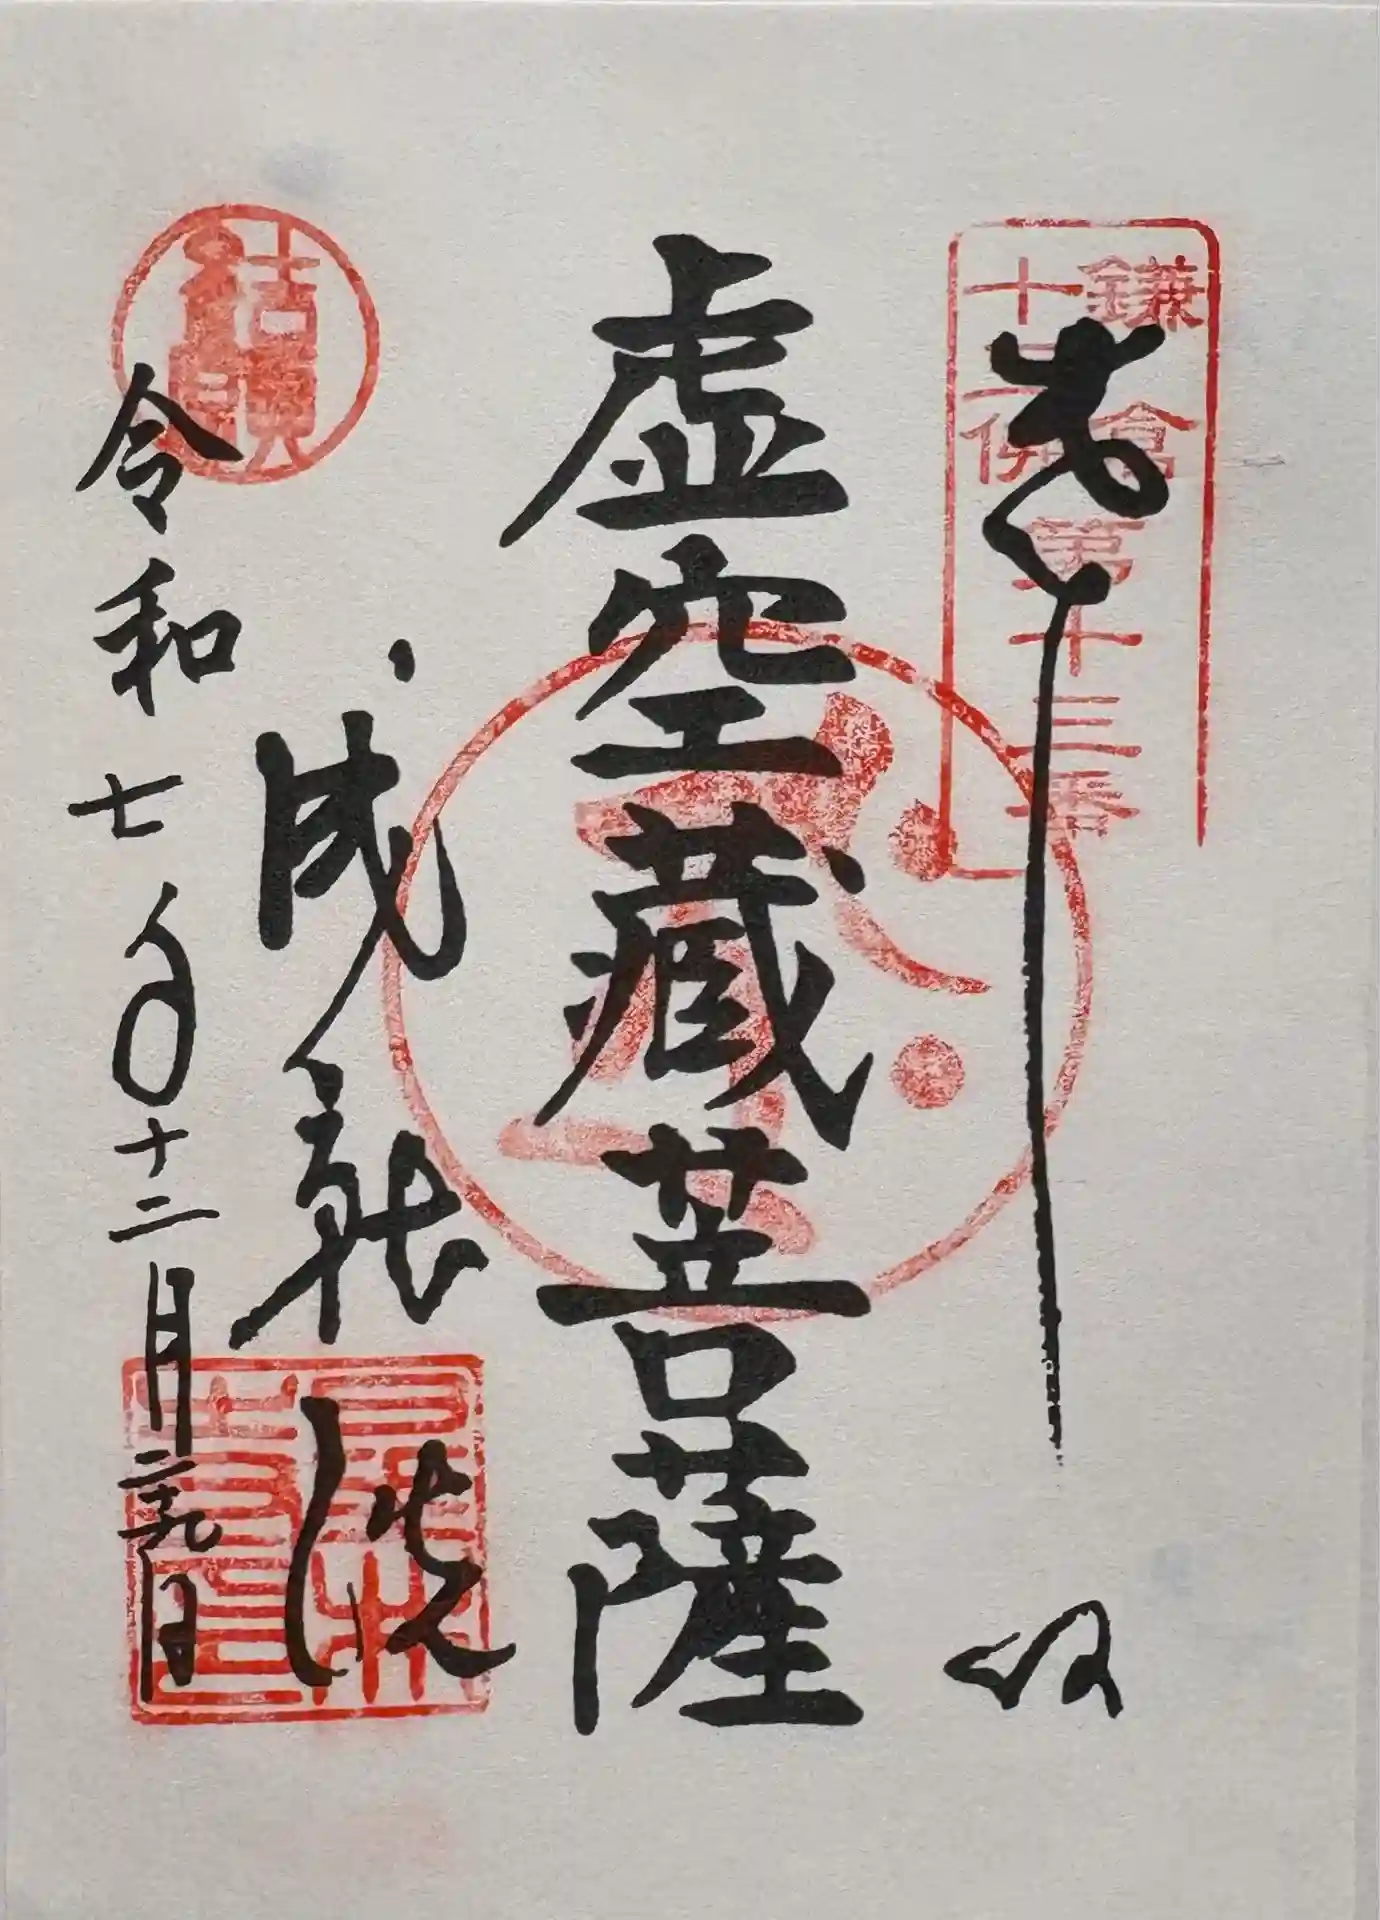 鎌倉
十三佛
第十三番
奉
拝
虚空藏菩薩
成就院
令和七年十二月二十九日
結願